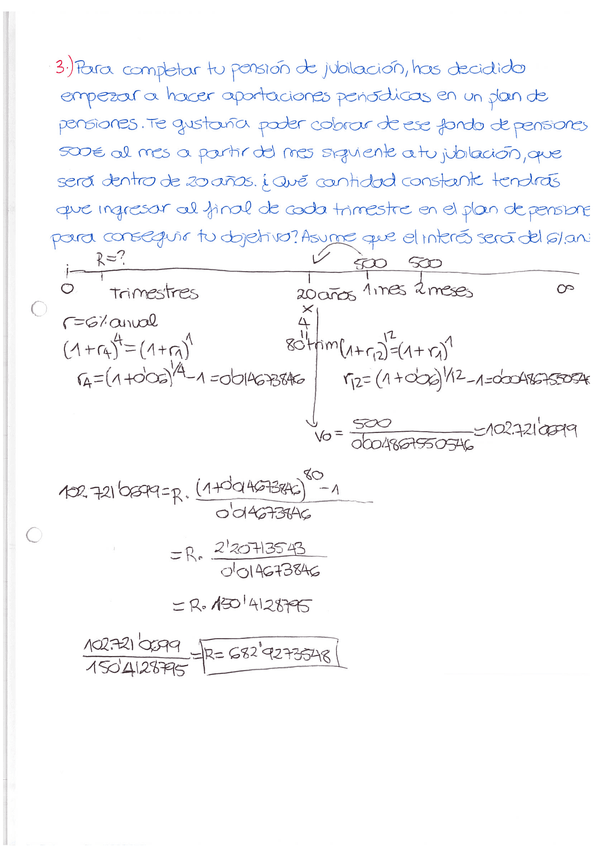 3.) Para completar tu pensión de jubilación, has decidido
empezar a hacer aportaciones periódicas en un plan de
pensiones. Te gustaría poder cobrar de ese fondo de pensiones
500€ al mes a partir del mes siguiente a tu jubilación, que
será dentro de 20 años. ¿Qué cantidad constante tendrás
que ingresar al final de cada trimestre en el plan de pensione
para conseguir tu objetivo? Asume que el interés será del 6% an
R=? 500 500
0 Trimestres 20 años 1 mes 2 meses ∞
x
4
"
80 trim
r=6% anual
(1+r4)^4=(1+r1)^1 (1+r12)^12=(1+r1)^1
r4=(1+0'06)^1/4-1=0'014673846 r12=(1+0'06)^1/12-1=0'00486755054
Vo = 500 / 0'004867550546 = 102.721'0699
102.721'0699=R. (1+0'014673846)^80 -1 / 0'014673846
=R. 2'20713543 / 0'014673846
=R. 150'4128795
102.721'0699 / 150'4128795 = R= 682'9273548